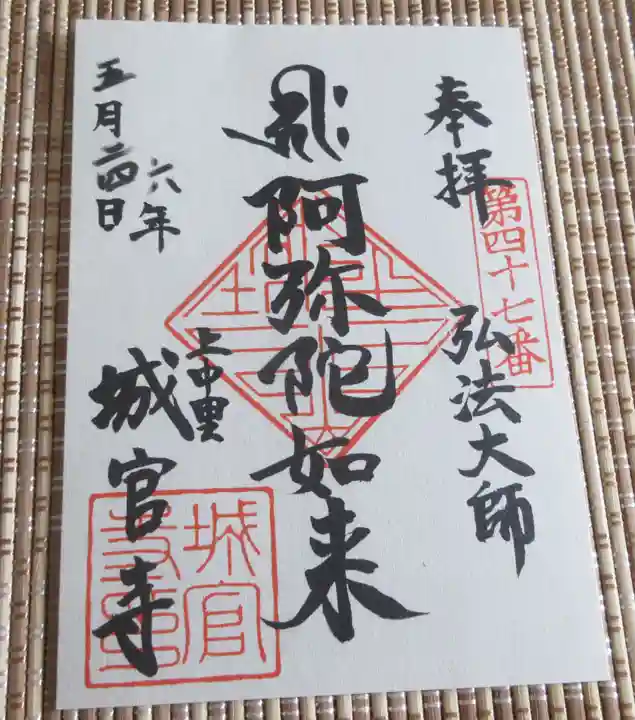 奉拝
第四十七番
弘法大師
阿弥陀如来
上中里
城官寺
六年
五月二四日